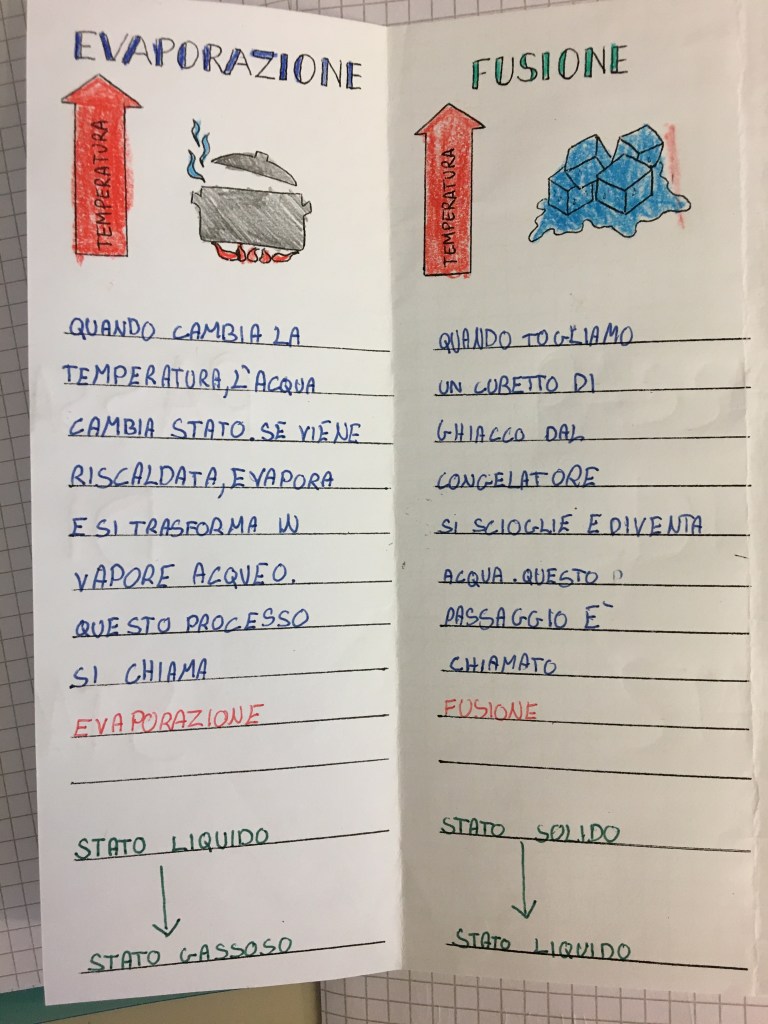 EVAPORAZIONE
TEMPERATURA
QUANDO CAMBIA LA
TEMPERATURA, L'ACQUA
CAMBIA STATO. SE VIENE
RISCALDATA, EVAPORA
E SI TRASFORMA IN
VAPORE ACQUEO.
QUESTO PROCESSO
SI CHIAMA
EVAPORAZIONE
STATO LIQUIDO
STATO GASSOSO
FUSIONE
TEMPERATURA
QUANDO TOGLIAMO
UN CUBETTO DI
GHIACCO DAL
CONGELATORE
SI SCIOGLIE E DIVENTA
ACQUA. QUESTO
PASSAGGIO È
CHIAMATO
FUSIONE
STATO SOLIDO
STATO LIQUIDO